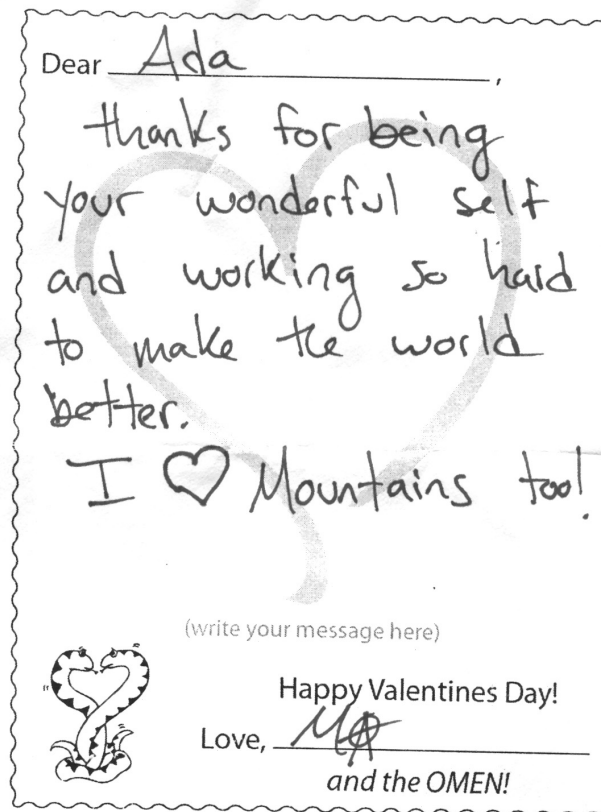 Dear Ada,
thanks for being
your wonderful self
and working so hard
to make the world
better.
I ♡ Mountains too!
(write your message here)
Happy Valentines Day!
Love, MA
and the OMEN!